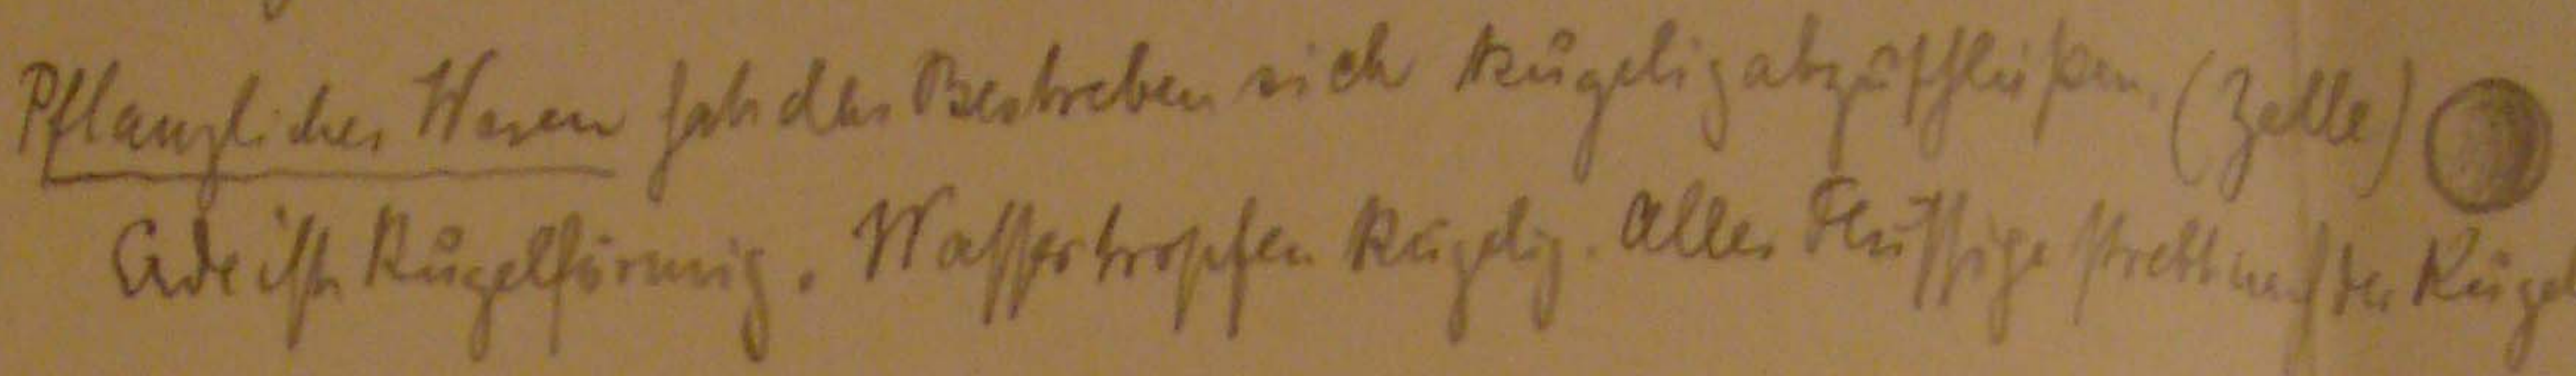 Pflanzliches Wesen hat das Bestreben sich kugelig abzuschließen. (Zelle)
Erde ist Kugelförmig. Wassertropfen kugelig. Alles Flüssige strebt nach der Kugel